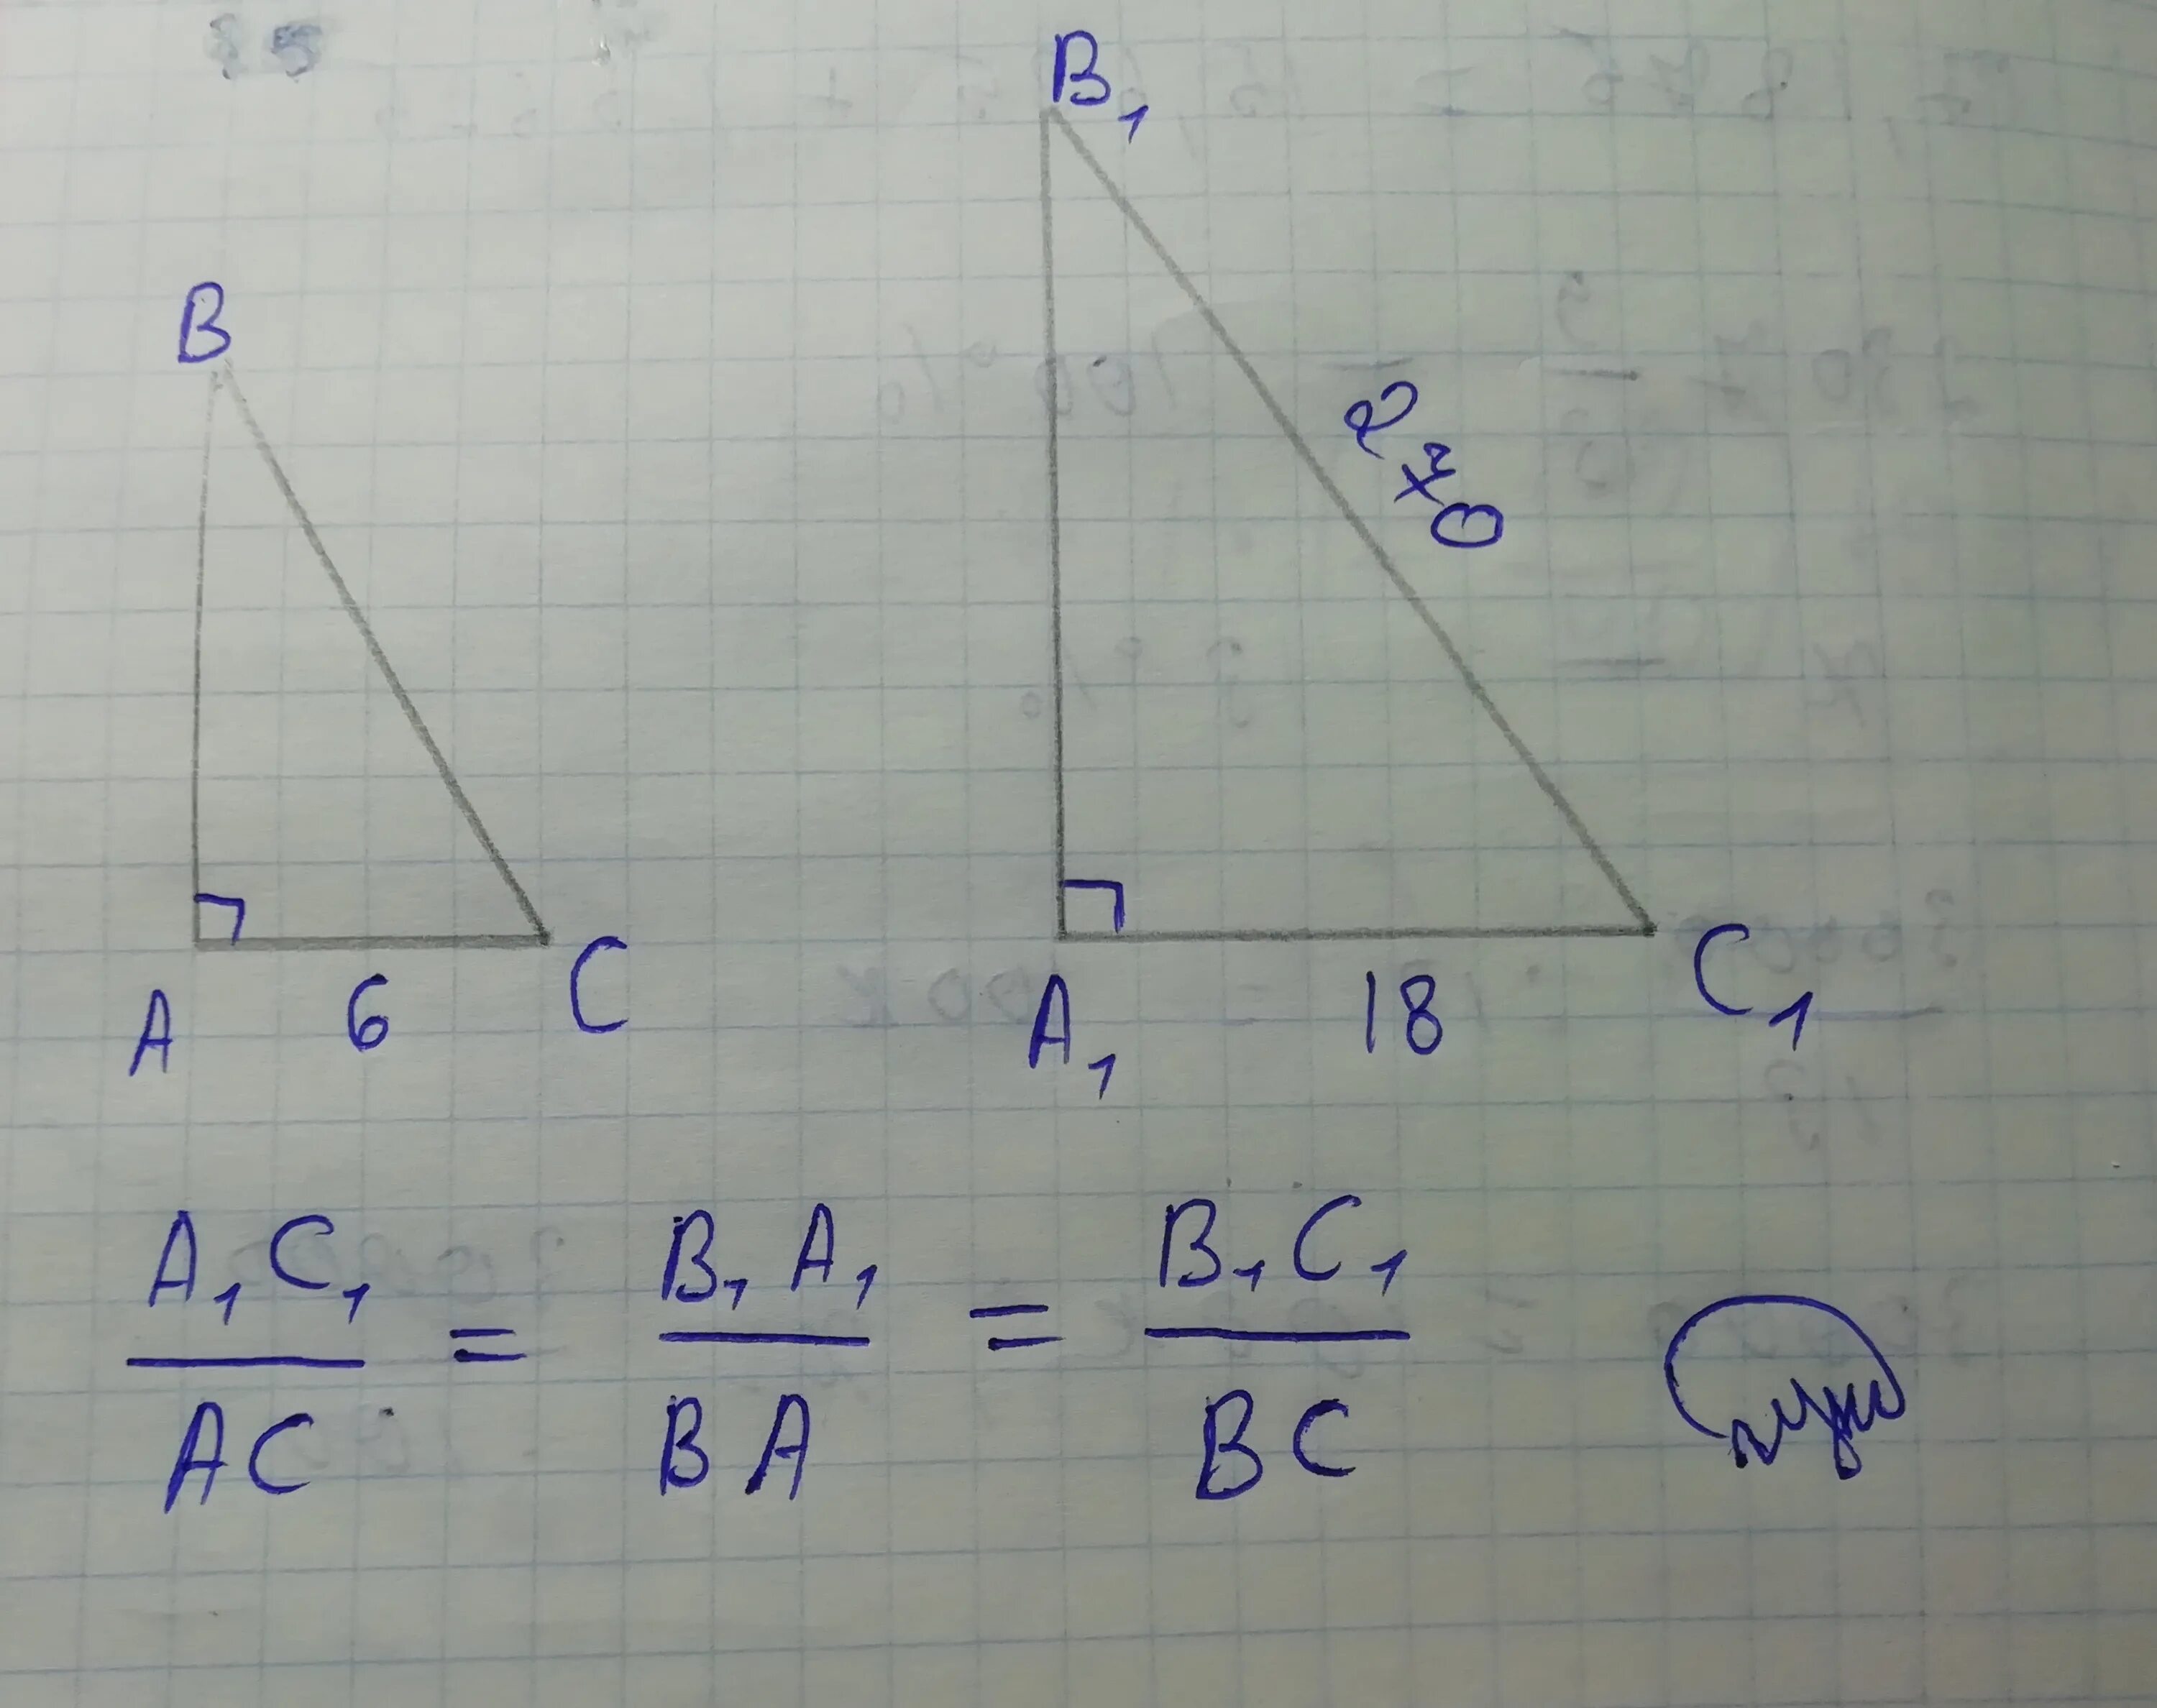 B₁
B
270
A 6 C
A₁ 18 C₁
A₁C₁ / AC = B₁A₁ / BA = B₁C₁ / BC